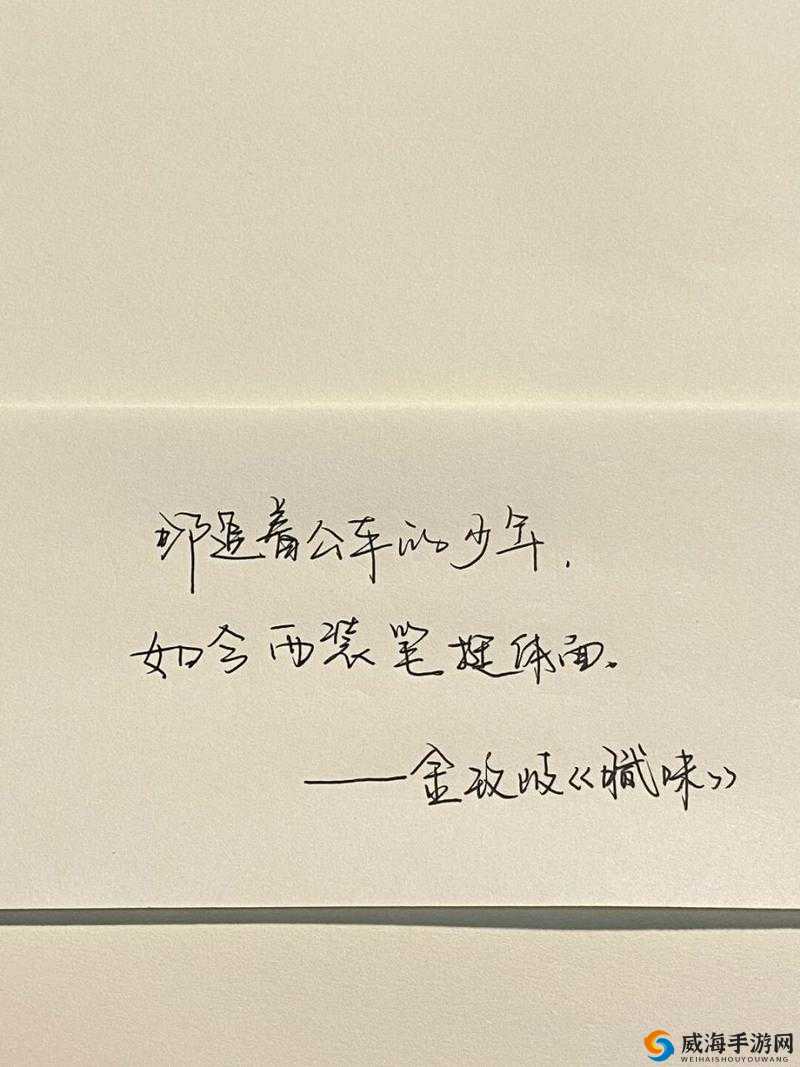 那追着公车的少年,
如今西装笔挺体面。
——金玟岐《腻味》
威海手游网
WEIHAISHOUYOUWANG